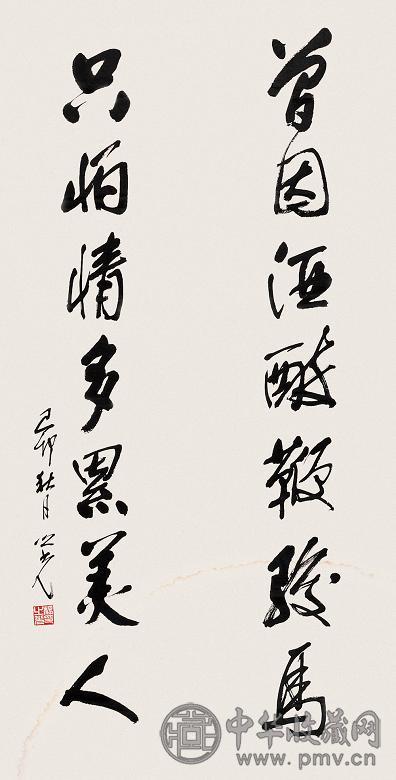 曾因酒醉鞭骏馬
只怕情多累美人
己卯秋月
中华收藏网
www.pmv.cn